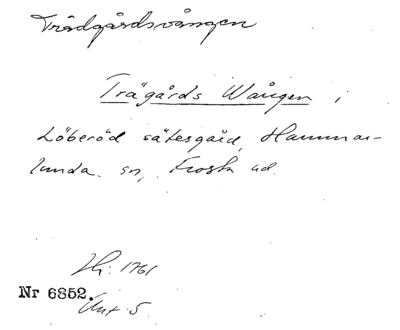 Trädgårdsvången
Trägårds Wången i
Löberöd sätesgård, Hammar-
lunda sn, Frosta hd.
Hr. 1761
Nr 6852.
Ant. 5.